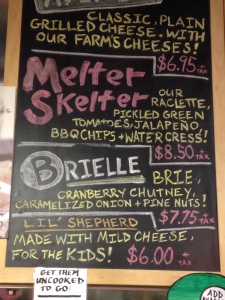 CLASSIC, PLAIN
GRILLED CHEESE. WITH
OUR FARM'S CHEESES!
$6.95 + TAX
Melter
Skelter
OUR
RACLETTE,
PICKLED GREEN
TOMATOES, JALAPEÑO
BBQ CHIPS + WATER CRESS!
$8.50 + TAX
BRIELLE
BRIE,
CRANBERRY CHUTNEY,
CARAMELIZED ONION + PINE NUTS!
LIL' SHEPHERD
$7.75 + TAX
MADE WITH MILD CHEESE,
FOR THE KIDS! $6.00 + TAX
GET THEM
UNCOOKED
TO GO:
ADD